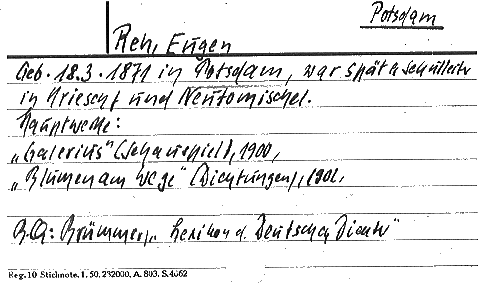 Potsdam
Reh, Eugen
Geb. 18.3. 1871 in Potsdam, war später Schulleiter
in Kriescht und Neutomischel.
Hauptwerke:
„Galerius" (Schauspiel), 1900,
„Blumen am Wege" (Dichtungen), 1902.
Brümmer, „Lexikon d. Deutschen Dichter"
Reg. 10 Stichnote. I. 50. 232000. A. 803. S. 4062